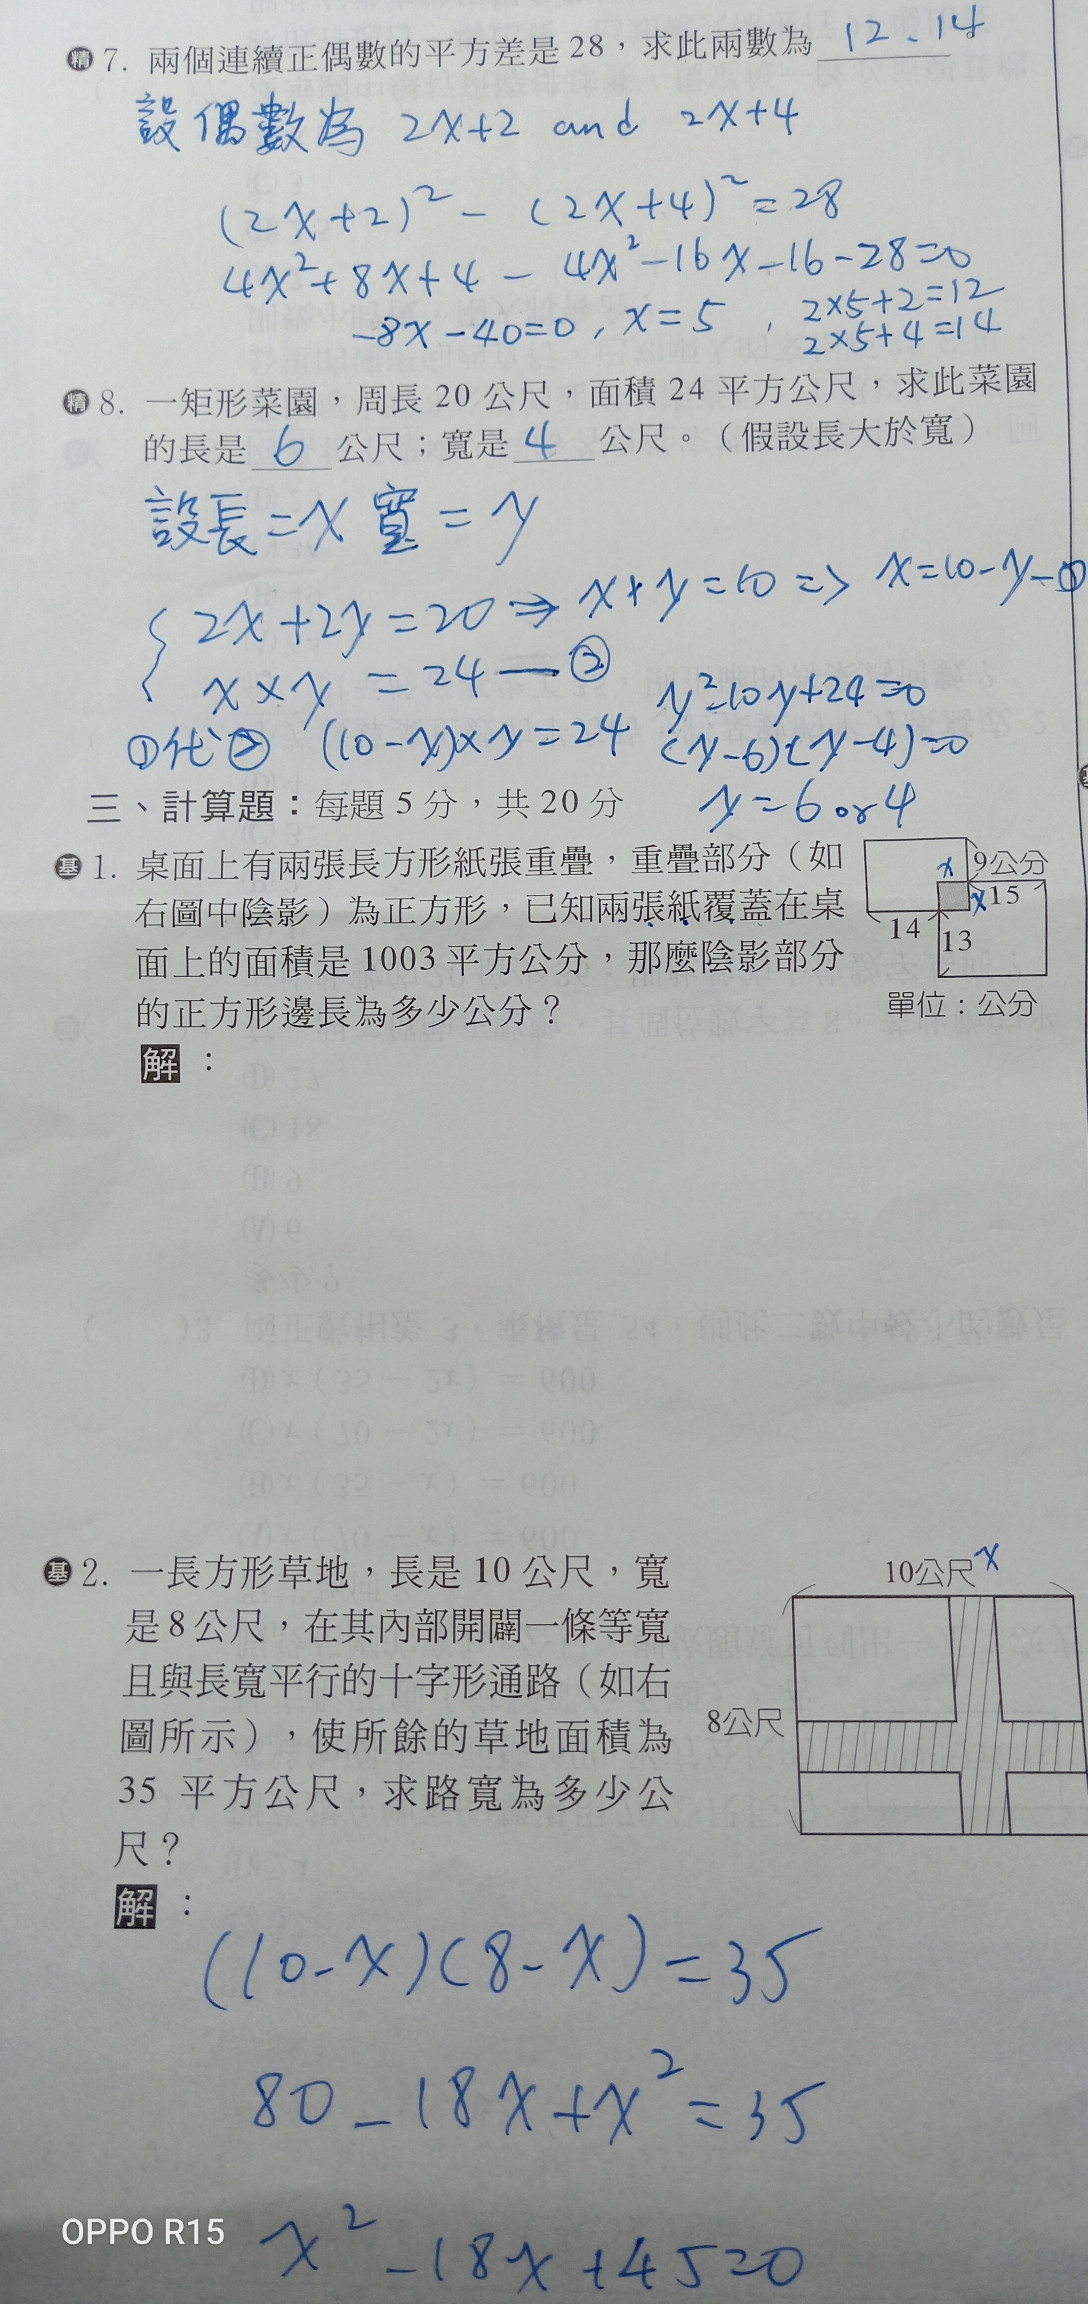 精 7. 兩個連續正偶數的平方差是 28，求此兩數為 12、14
設偶數為 2x+2 and 2x+4
(2x+2)² - (2x+4)² = 28
4x²+8x+4 - 4x²-16x-16-28=0
-8x-40=0, x=5, 2×5+2=12
2×5+4=14
精 8. 一矩形菜園，周長 20 公尺，面積 24 平方公尺，求此菜園
的長是 6 公尺；寬是 4 公尺。（假設長大於寬）
設長=x 寬=y
2x+2y=20 ⇒ x+y=10 => x=10-y-①
x×y=24—②
y²-10y+24=0
①代② (10-y)×y=24 (y-6)(y-4)=0
y=6 or 4
三、計算題：每題 5 分，共 20 分
基 1. 桌面上有兩張長方形紙張重疊，重疊部分（如
右圖中陰影）為正方形，已知兩張紙覆蓋在桌
面上的面積是 1003 平方公分，那麼陰影部分
的正方形邊長為多少公分？
x 9公分
x 15
14 13
單位：公分
解：
基 2. 一長方形草地，長是 10 公尺，寬
是 8 公尺，在其內部開闢一條等寬
且與長寬平行的十字形通路（如右
圖所示），使所餘的草地面積為
35 平方公尺，求路寬為多少公
尺？
10公尺 x
8公尺
解：
(10-x)(8-x)=35
80-18x+x²=35
x²-18x+45=0
OPPO R15